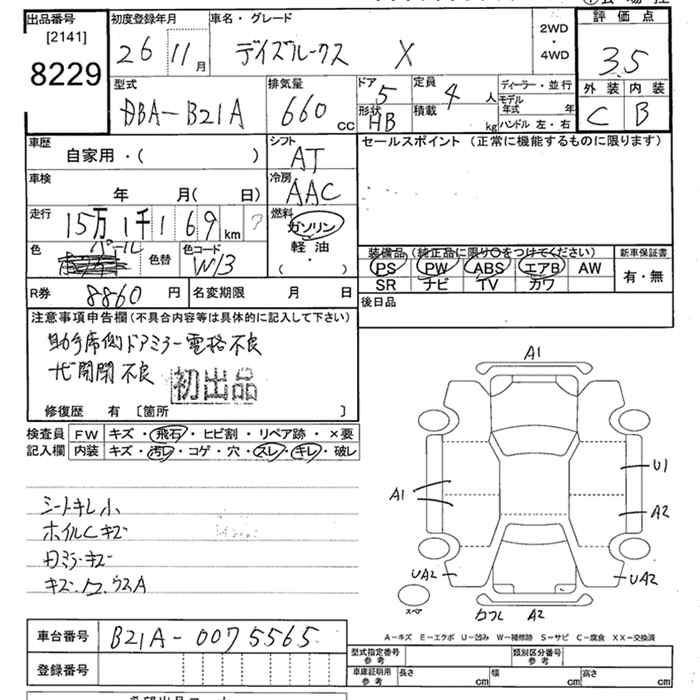 出品番号
[2141]
8229
初度登録年月
26 11月
車名・グレード
デイズルークス X
2WD
・
4WD
評価点
3.5
外装 内装
C B
型式
DBA-B21A
排気量
660 cc
ドア 5
形状 HB
定員 4 人
積載 kg
ディーラー・並行
モデル年式 年
ハンドル 左・右
車歴
自家用・( )
シフト
AT
セールスポイント (正常に機能するものに限ります)
車検
年 月( 日)
冷房
AAC
走行
15万1千169km ?
燃料
ガソリン
軽油
( ・ )
色
パール
色替
色コード
W13
装備品 (純正品に限り○をつけてください)
PS PW ABS エアB AW
SR ナビ TV カワ
新車保証書
有・無
R券 8860 円
名変期限 月 日
後日品
注意事項申告欄(不具合内容等は具体的に記入して下さい)
助手席側ドアミラー電格不良
開閉不良
初出品
修復歴 有 [箇所 ]
検査員
記入欄
FW キズ・飛石・ヒビ割・リペア跡・×要
内装 キズ・汚レ・コゲ・穴・スレ・キレ・破レ
シートキレ小
ホイルCキズ
ミラーキズ
A1
U1
A1
A2
UA2
UA2
スペア
A2
A-キズ E-エクボ U-凹み W-補修跡 S-サビ C-腐食 XX-交換済
車台番号
B21A-0075565
登録番号
型式指定番号
参考
類別区分番号
参考
車庫証明用
参考
長さ cm 幅 cm 高さ cm